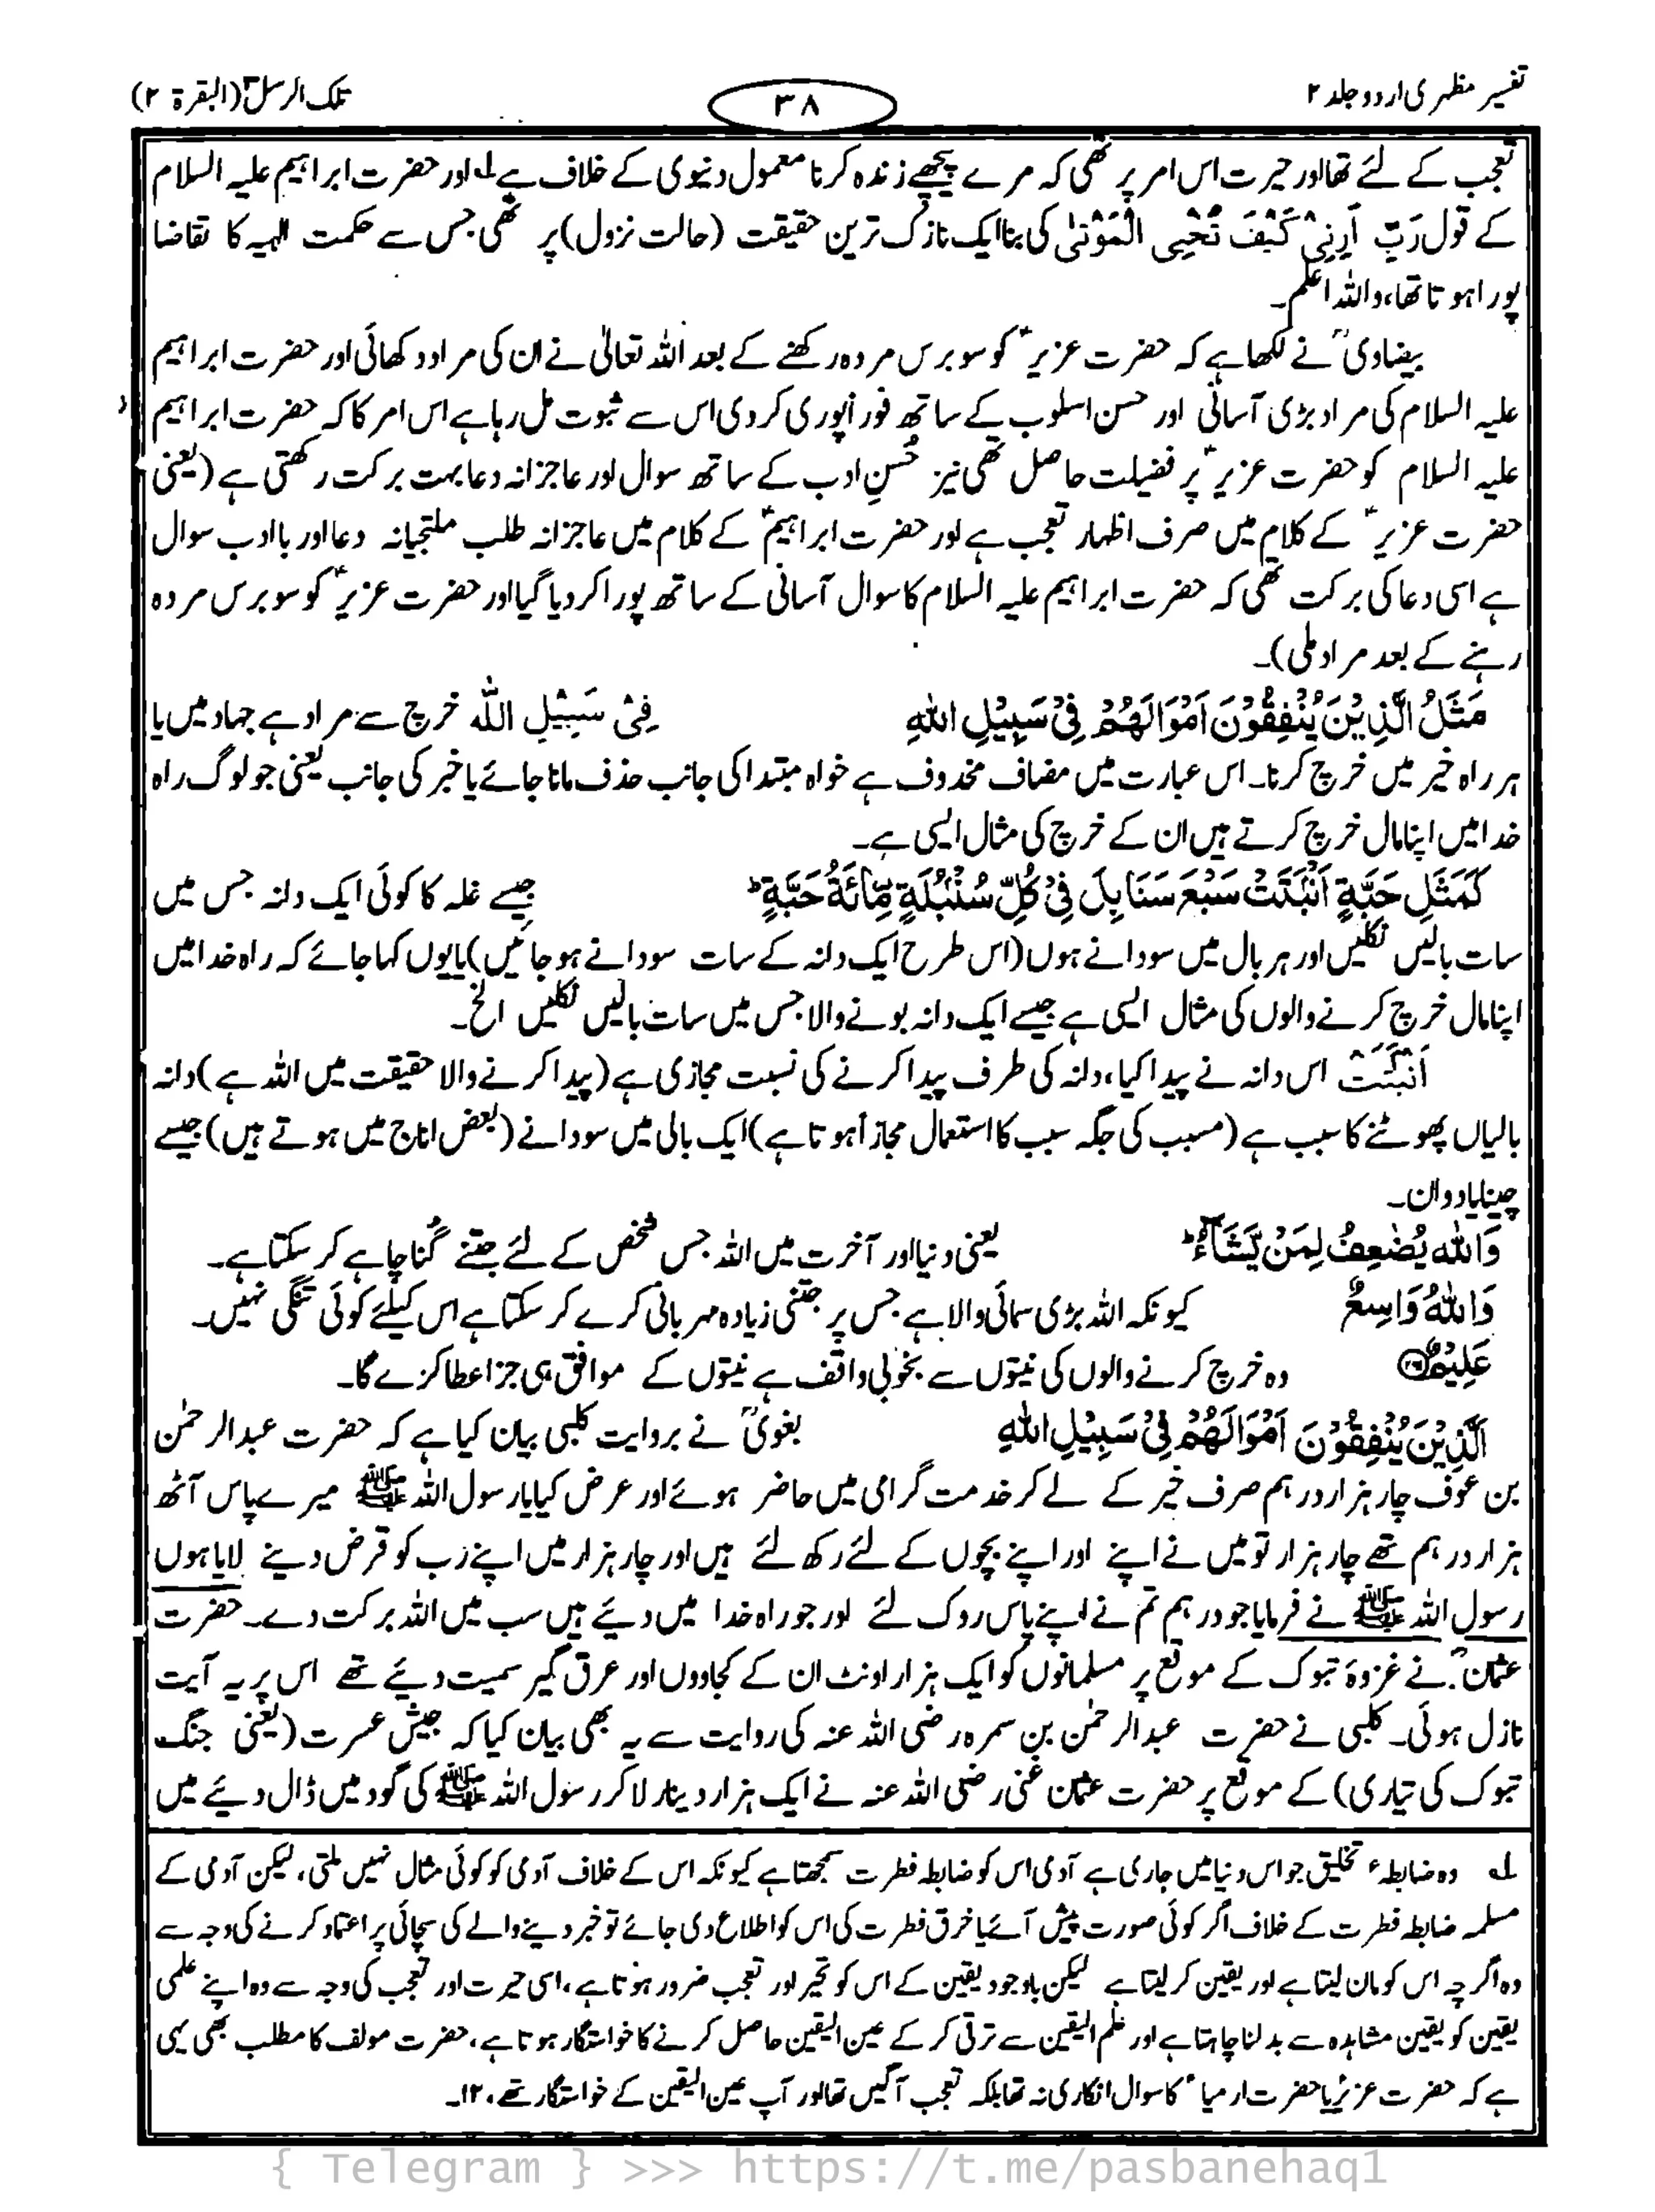 تفسیر مظہری اردو جلد ۲
۳۸
تلک الرسل ۳ (البقرۃ ۲)
تعجب کے لئے تھا اور حیرت اس امر پر تھی کہ مرے پیچھے زندہ کرنا معمول دنیوی کے خلاف ہے لہ اور حضرت ابراہیم علیہ السلام
کے قول رَبِّ اَرِنِیْ کَیْفَ تُحْیِی الْمَوْتٰی کی بنا ایک نازک ترین حقیقت (حالت نزول) پر تھی جس سے حکمت الٰہیہ کا تقاضا
پورا ہوتا تھا، واللہ اعلم۔
بیضاویؒ نے لکھا ہے کہ حضرت عزیرؑ کو سو برس مردہ رکھنے کے بعد اللہ تعالیٰ نے ان کی مراد دکھائی اور حضرت ابراہیم
علیہ السلام کی مراد بڑی آسانی اور حسن اسلوب کے ساتھ فوراً پوری کر دی اس سے ثبوت مل رہا ہے اس امر کا کہ حضرت ابراہیم
علیہ السلام کو حضرت عزیرؑ پر فضیلت حاصل تھی نیز حُسنِ ادب کے ساتھ سوال اور عاجزانہ دعا بہت برکت رکھتی ہے (یعنی
حضرت عزیرؑ کے کلام میں صرف اظہار تعجب ہے اور حضرت ابراہیمؑ کے کلام میں عاجزانہ طلب ملتجیانہ دعا اور با ادب سوال
ہے اسی دعا کی برکت تھی کہ حضرت ابراہیم علیہ السلام کا سوال آسانی کے ساتھ پورا کر دیا گیا اور حضرت عزیرؑ کو سو برس مردہ
رہنے کے بعد مراد ملی)۔
مَثَلُ الَّذِیْنَ یُنْفِقُوْنَ اَمْوَالَهُمْ فِیْ سَبِیْلِ اللّٰهِ فِیْ سَبِیْلِ اللّٰہ خرچ سے مراد ہے جہاد میں یا
ہر راہ خیر میں خرچ کرنا۔ اس عبارت میں مضاف محذوف ہے خواہ مبتدا کی جانب حذف مانا جائے یا خبر کی جانب یعنی جو لوگ راہ
خدا میں اپنا مال خرچ کرتے ہیں ان کے خرچ کی مثال ایسی ہے۔
کَمَثَلِ حَبَّةٍ اَنْۢبَتَتْ سَبْعَ سَنَابِلَ فِیْ کُلِّ سُنْۢبُلَةٍ مِّائَةُ حَبَّةٍ ؕ جیسے غلہ کا کوئی ایک دانہ جس میں
سات بالیں نکلیں اور ہر بال میں سو دانے ہوں (اس طرح ایک دانہ کے سات سو دانے ہو جائیں) یا یوں کہا جائے کہ راہ خدا میں
اپنا مال خرچ کرنے والوں کی مثال ایسی ہے جیسے ایک دانہ بونے والا جس میں سات بالیں نکلیں الخ۔
اَنْۢبَتَتْ اس دانہ نے پیدا کیا، دانہ کی طرف پیدا کرنے کی نسبت مجازی ہے (پیدا کرنے والا حقیقت میں اللہ ہے) دانہ
بالیاں پھوٹنے کا سبب ہے (مسبب کی جگہ سبب کا استعمال مجازاً ہوتا ہے) ایک بالی میں سو دانے (بعض اناج میں ہوتے ہیں) جیسے
چینا یا دوان۔
وَاللّٰهُ یُضٰعِفُ لِمَنْ یَّشَآءُ ؕ یعنی دنیا اور آخرت میں اللہ جس شخص کے لئے جتنے گُنا چاہے کر سکتا ہے۔
وَاللّٰهُ وَاسِعٌ کیونکہ اللہ بڑی سمائی والا ہے جس پر جتنی زیادہ مہربانی کرے کر سکتا ہے اس کیلئے کوئی تنگی نہیں۔
عَلِیْمٌ وہ خرچ کرنے والوں کی نیتوں سے بخوبی واقف ہے نیتوں کے موافق ہی جزا عطا کرے گا۔
اَلَّذِیْنَ یُنْفِقُوْنَ اَمْوَالَهُمْ فِیْ سَبِیْلِ اللّٰهِ بغویؒ نے بروایت کلبی بیان کیا ہے کہ حضرت عبدالرحمٰن
بن عوف چار ہزار درہم صرف خیر کے لے کر خدمت گرامی میں حاضر ہوئے اور عرض کیا یا رسول اللہ ﷺ میرے پاس آٹھ
ہزار درہم تھے چار ہزار تو میں نے اپنے اور اپنے بچوں کے لئے رکھ لئے ہیں اور چار ہزار میں اپنے رب کو قرض دینے لایا ہوں
رسول اللہ ﷺ نے فرمایا جو درہم تم نے اپنے پاس روک لئے اور جو راہ خدا میں دیئے ہیں سب میں اللہ برکت دے۔ حضرت
عثمانؓ نے غزوۂ تبوک کے موقع پر مسلمانوں کو ایک ہزار اونٹ ان کے کجاووں اور عرق گیر سمیت دیئے تھے اس پر یہ آیت
نازل ہوئی۔ کلبی نے حضرت عبدالرحمٰن بن سمرہ رضی اللہ عنہ کی روایت سے یہ بھی بیان کیا کہ جیش عسرت (یعنی جنگ
تبوک کی تیاری) کے موقع پر حضرت عثمان غنی رضی اللہ عنہ نے ایک ہزار دینار لا کر رسول اللہ ﷺ کی گود میں ڈال دیئے میں
لہ وہ ضابطۂ تخلیق جو اس دنیا میں جاری ہے آدمی اس کو ضابطہ فطرت سمجھتا ہے کیونکہ اس کے خلاف آدمی کو کوئی مثال نہیں ملتی، لیکن آدمی کے
مسلمہ ضابطہ فطرت کے خلاف اگر کوئی صورت پیش آئے یا خرق فطرت کی اس کو اطلاع دی جائے تو خبر دینے والے کی سچائی پر اعتماد کرنے کی وجہ سے
وہ اگرچہ اس کو مان لیتا ہے اور یقین کر لیتا ہے لیکن باوجود یقین کے اس کو تحیر اور تعجب ضرور ہوتا ہے، اسی حیرت اور تعجب کی وجہ سے وہ اپنے علمی
یقین کو یقین مشاہدہ سے بدلنا چاہتا ہے اور علم الیقین سے ترقی کر کے عین الیقین حاصل کرنے کا خواستگار ہوتا ہے، حضرت مولف کا مطلب بھی یہی
ہے کہ حضرت عزیرؑ یا حضرت ارمیاؑ کا سوال انکاری نہ تھا بلکہ تعجب آگیں تھا اور آپ عین الیقین کے خواستگار تھے، ۱۲۔
{ Telegram } >>> https://t.me/pasbanehaq1